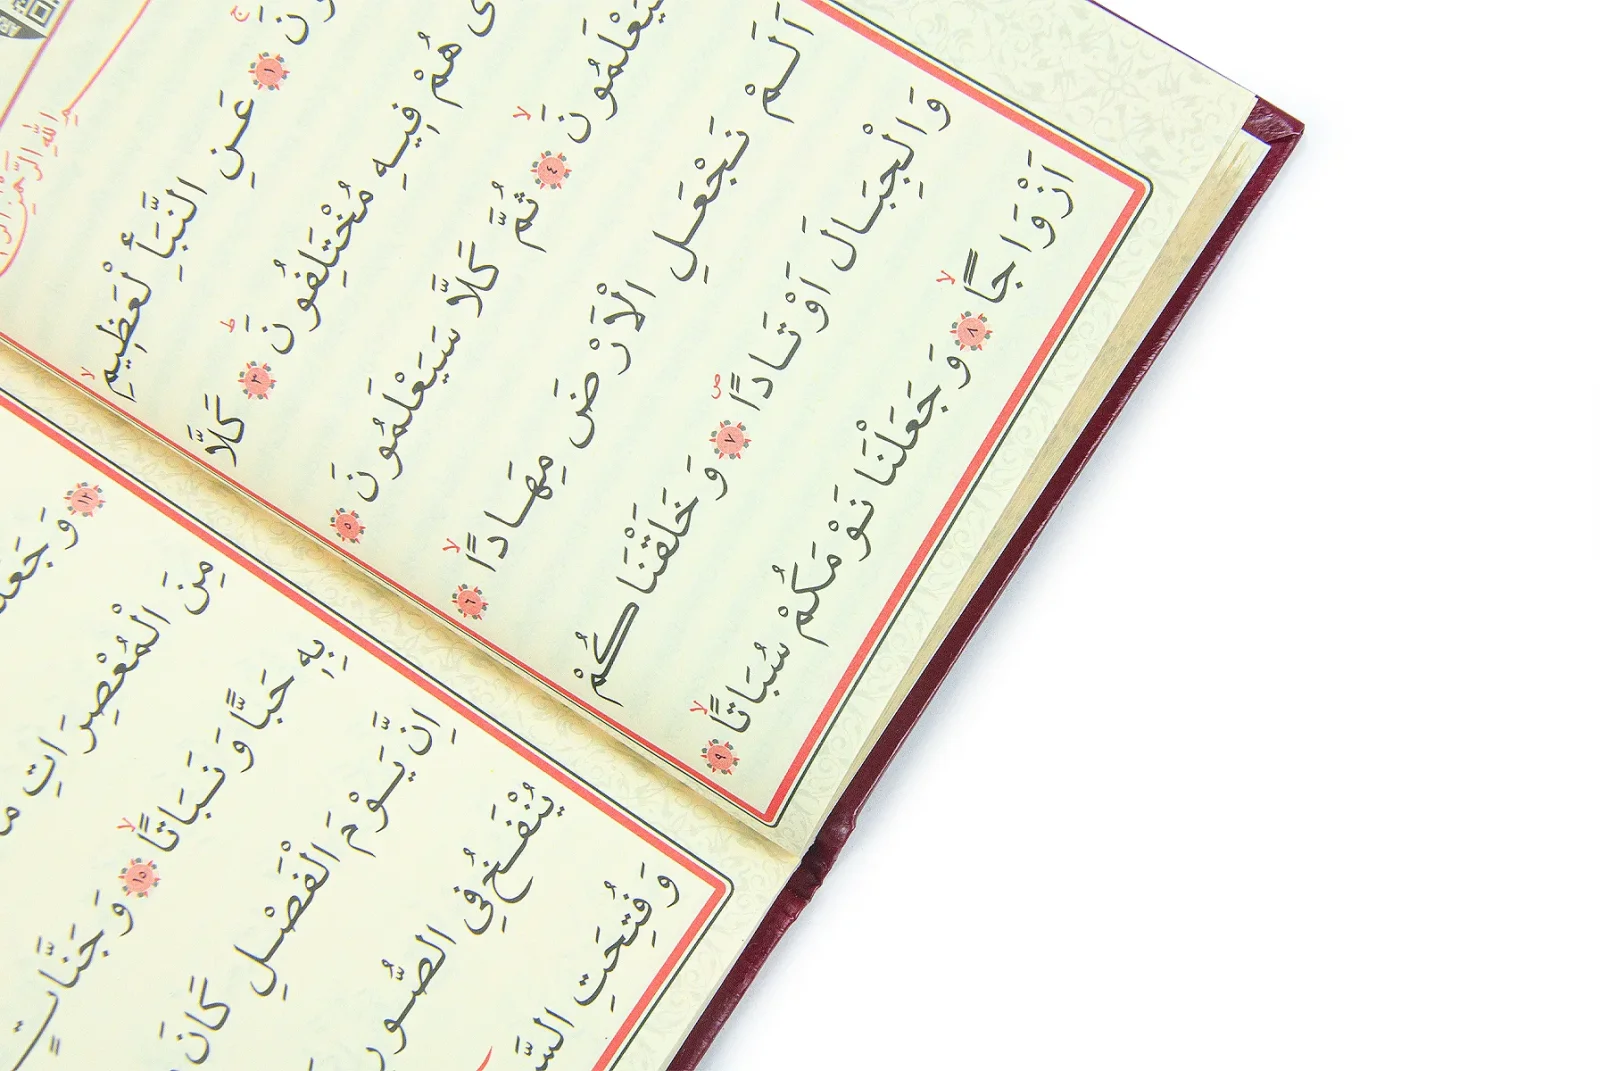 اللهِ الرَّحْمٰنِ
ونَ ۚ ١ عَنِ النَّبَأِ الْعَظِيمِ ۙ
هُمْ فِيهِ مُخْتَلِفُونَ ۜ ٣ كَلَّا
سَيَعْلَمُونَ ۙ ٤ ثُمَّ كَلَّا سَيَعْلَمُونَ ٥
اَلَمْ نَجْعَلِ الْاَرْضَ مِهَادًا ۙ ٦
وَالْجِبَالَ اَوْتَادًا ۖ ٧ وَخَلَقْنَاكُمْ
اَزْوَاجًا ۙ ٨ وَجَعَلْنَا نَوْمَكُمْ سُبَاتًا ۙ ٩
١٢ وَجَعَلْ
مِنَ الْمُعْصِرَاتِ مَا
بِهِ حَبًّا وَنَبَاتًا ۙ ١٥ وَجَنَّاتٍ
اِنَّ يَوْمَ الْفَصْلِ كَانَ
يُنْفَخُ فِي الصُّورِ
وَفُتِحَتِ السَّ